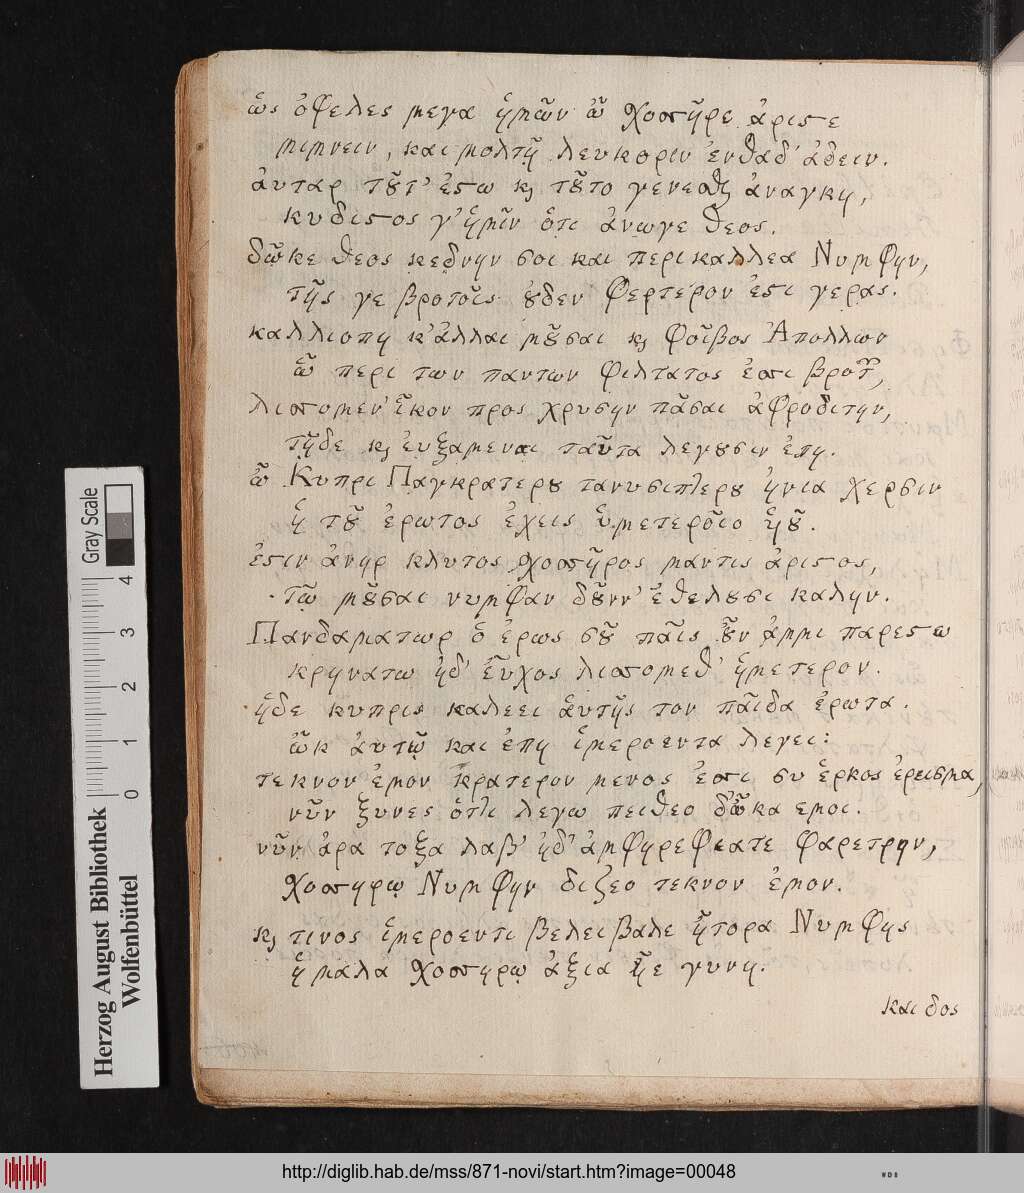 ὥς ὀφελες μεγα ἡμῶν ὦ Χοσπῆρε ἀριςε
μιμνειν, και μολπῇ λευκοριν ἐνθαδ' ἀδειν.
ἀυταρ τȣ͂τ' ἐςω κ τȣ͂το γενεσθ ἀναγκη,
κυδιςος γ' ἡμῖν ὁτι ἀνωγε θεος.
δῶκε θεος κεδνην σοι και περικαλλεα Νυμφην,
τῆς γε βροτοῖς ȣδεν φερτερον ἐςι γερας.
καλλιοπη κ' ἀλλαι μȣ͂σαι κ φοῖβος Ἀπολλων
ὦ περι των παντων φιλτατος ἐσι βροτ,
λισσομεν' ἧκον προς χρυσην πᾶσαι ἀφροδιτην,
τῇδε κ ἐυξαμεναι ταῦτα λεγȣσιν ἐπη.
ὦ Κυπρι Παγκρατερȣ τανυσιπτερȣ ἡνια χερσιν
ἡ τȣ͂ ἐρωτος ἐχεις ὑμετεροῖο ἡȣ͂.
ἐςιν ἀνηρ κλυτος χοσπῆρος μαντις ἀριςος,
τῷ μȣ͂σαι νυμφαν δȣ͂νν' ἐθελȣσι καλην.
Πανδαματωρ ὁ ἐρως σȣ͂ παῖς ȣ͂ν ἀμμι παρεςω
κρηνατω ἠδ' εὖχος λισσομεθ' ἡμετερον.
ἡδε κυπρις καλεει ἁυτῆς τον παῖδα ἐρωτα.
ὦκ' ἀυτῷ και ἐπη ἱμεροεντα λεγει:
τεκνον ἐμον κρατερον μενος ἐσι συ ἑρκος ἐρεισμα,
νῦν ξυνες ὁττι λεγω πειθεο δῶκα εμοι.
νῦν ἀρα τοξα λαβ' ἠδ' ἀμφηρεφεατε φαρετρην,
χοσπηρῳ Νυμφην διζεο τεκνον ἐμον.
κ τινος ἱμεροεντι βελει βαλε ἦτορα Νυμφης
ἡ μαλα χοσπηρῳ ἀξια ἦε γυνη.
και δος
Herzog August Bibliothek
Wolfenbüttel
Gray Scale
0 1 2 3 4
http://diglib.hab.de/mss/871-novi/start.htm?image=00048